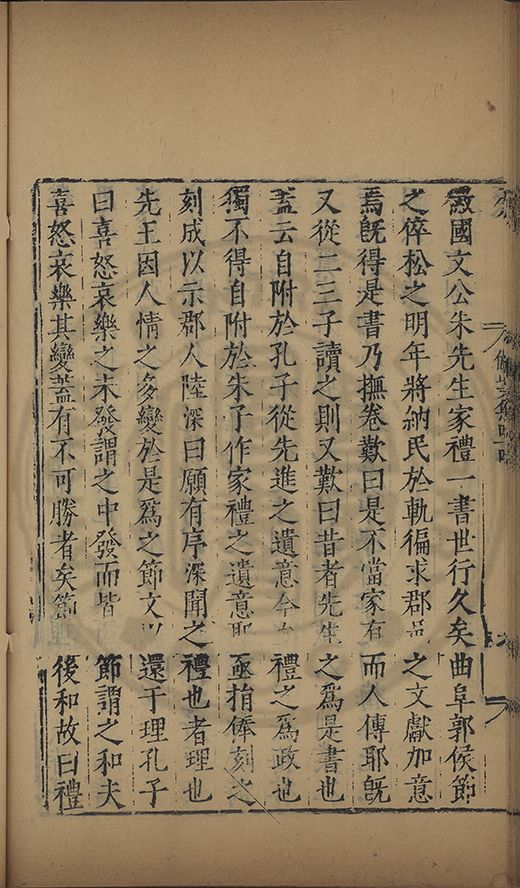 徽國文公朱先生家禮一書世行久矣曲阜郭侯節
之倅松之明年將納民於軌徧求郡邑之文獻加意
焉旣得是書乃撫卷歎曰是不當家有而人傳耶旣
又從二三子讀之則又歎曰昔者先生之爲是書也
蓋云自附於孔子從先進之遺意今禮之爲政也
獨不得自附於朱子作家禮之遺意耶亟捐俸刻之
刻成以示郡人陸深曰願有序深聞之禮也者理也
先王因人情之多變於是爲之節文以還于理孔子
曰喜怒哀樂之未發謂之中發而皆節謂之和夫
喜怒哀樂其變蓋有不可勝者矣節後和故曰禮